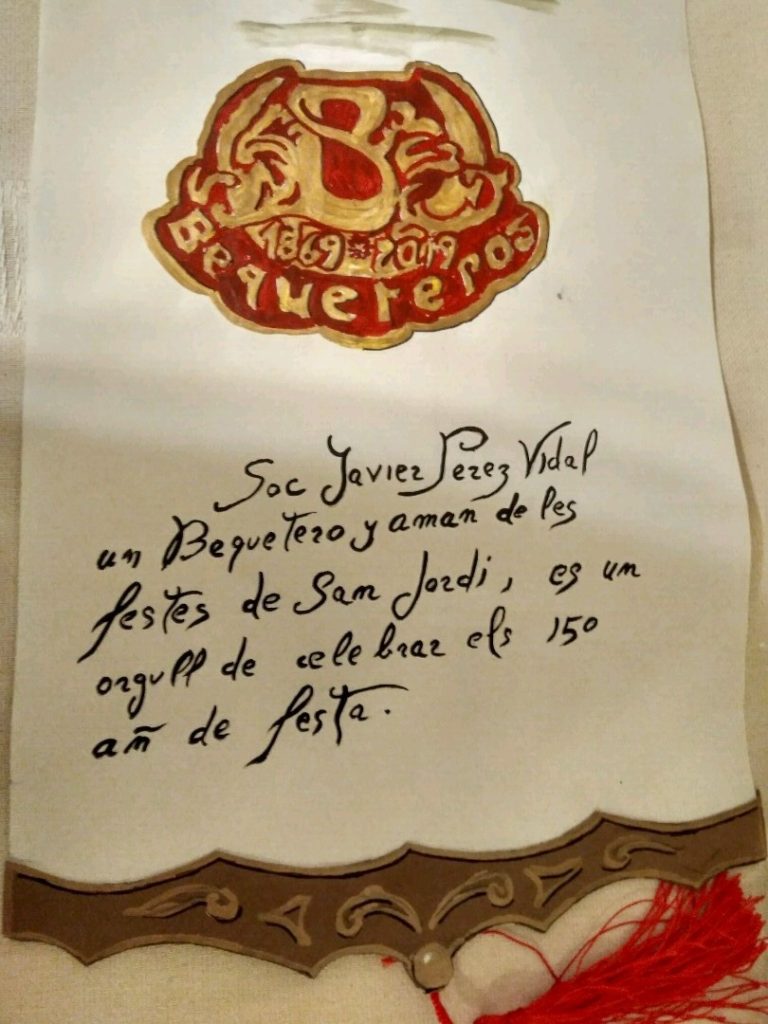 B
1869 * 2019
Bequeteros
Soc Javier Perez Vidal
un Bequetero y aman de les
festes de San Jordi, es un
orgull de celebrar els 150
añ de festa.